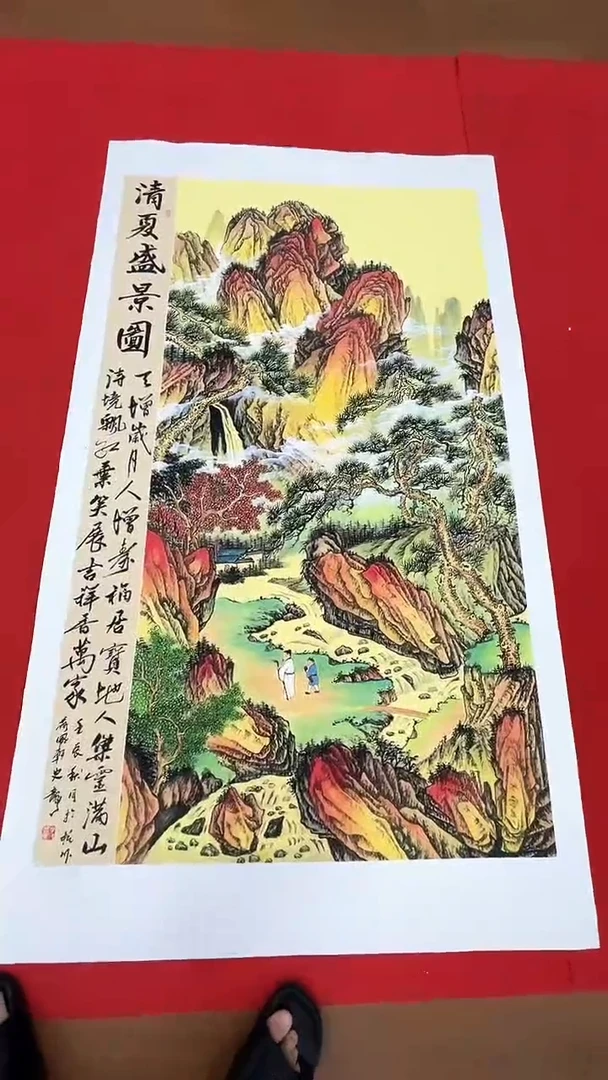 清夏盛景圖
天增歲月人增壽福居寶地人集靈滿山
詩境飄红葉笑展吉祥香萬家
壬辰秋月於